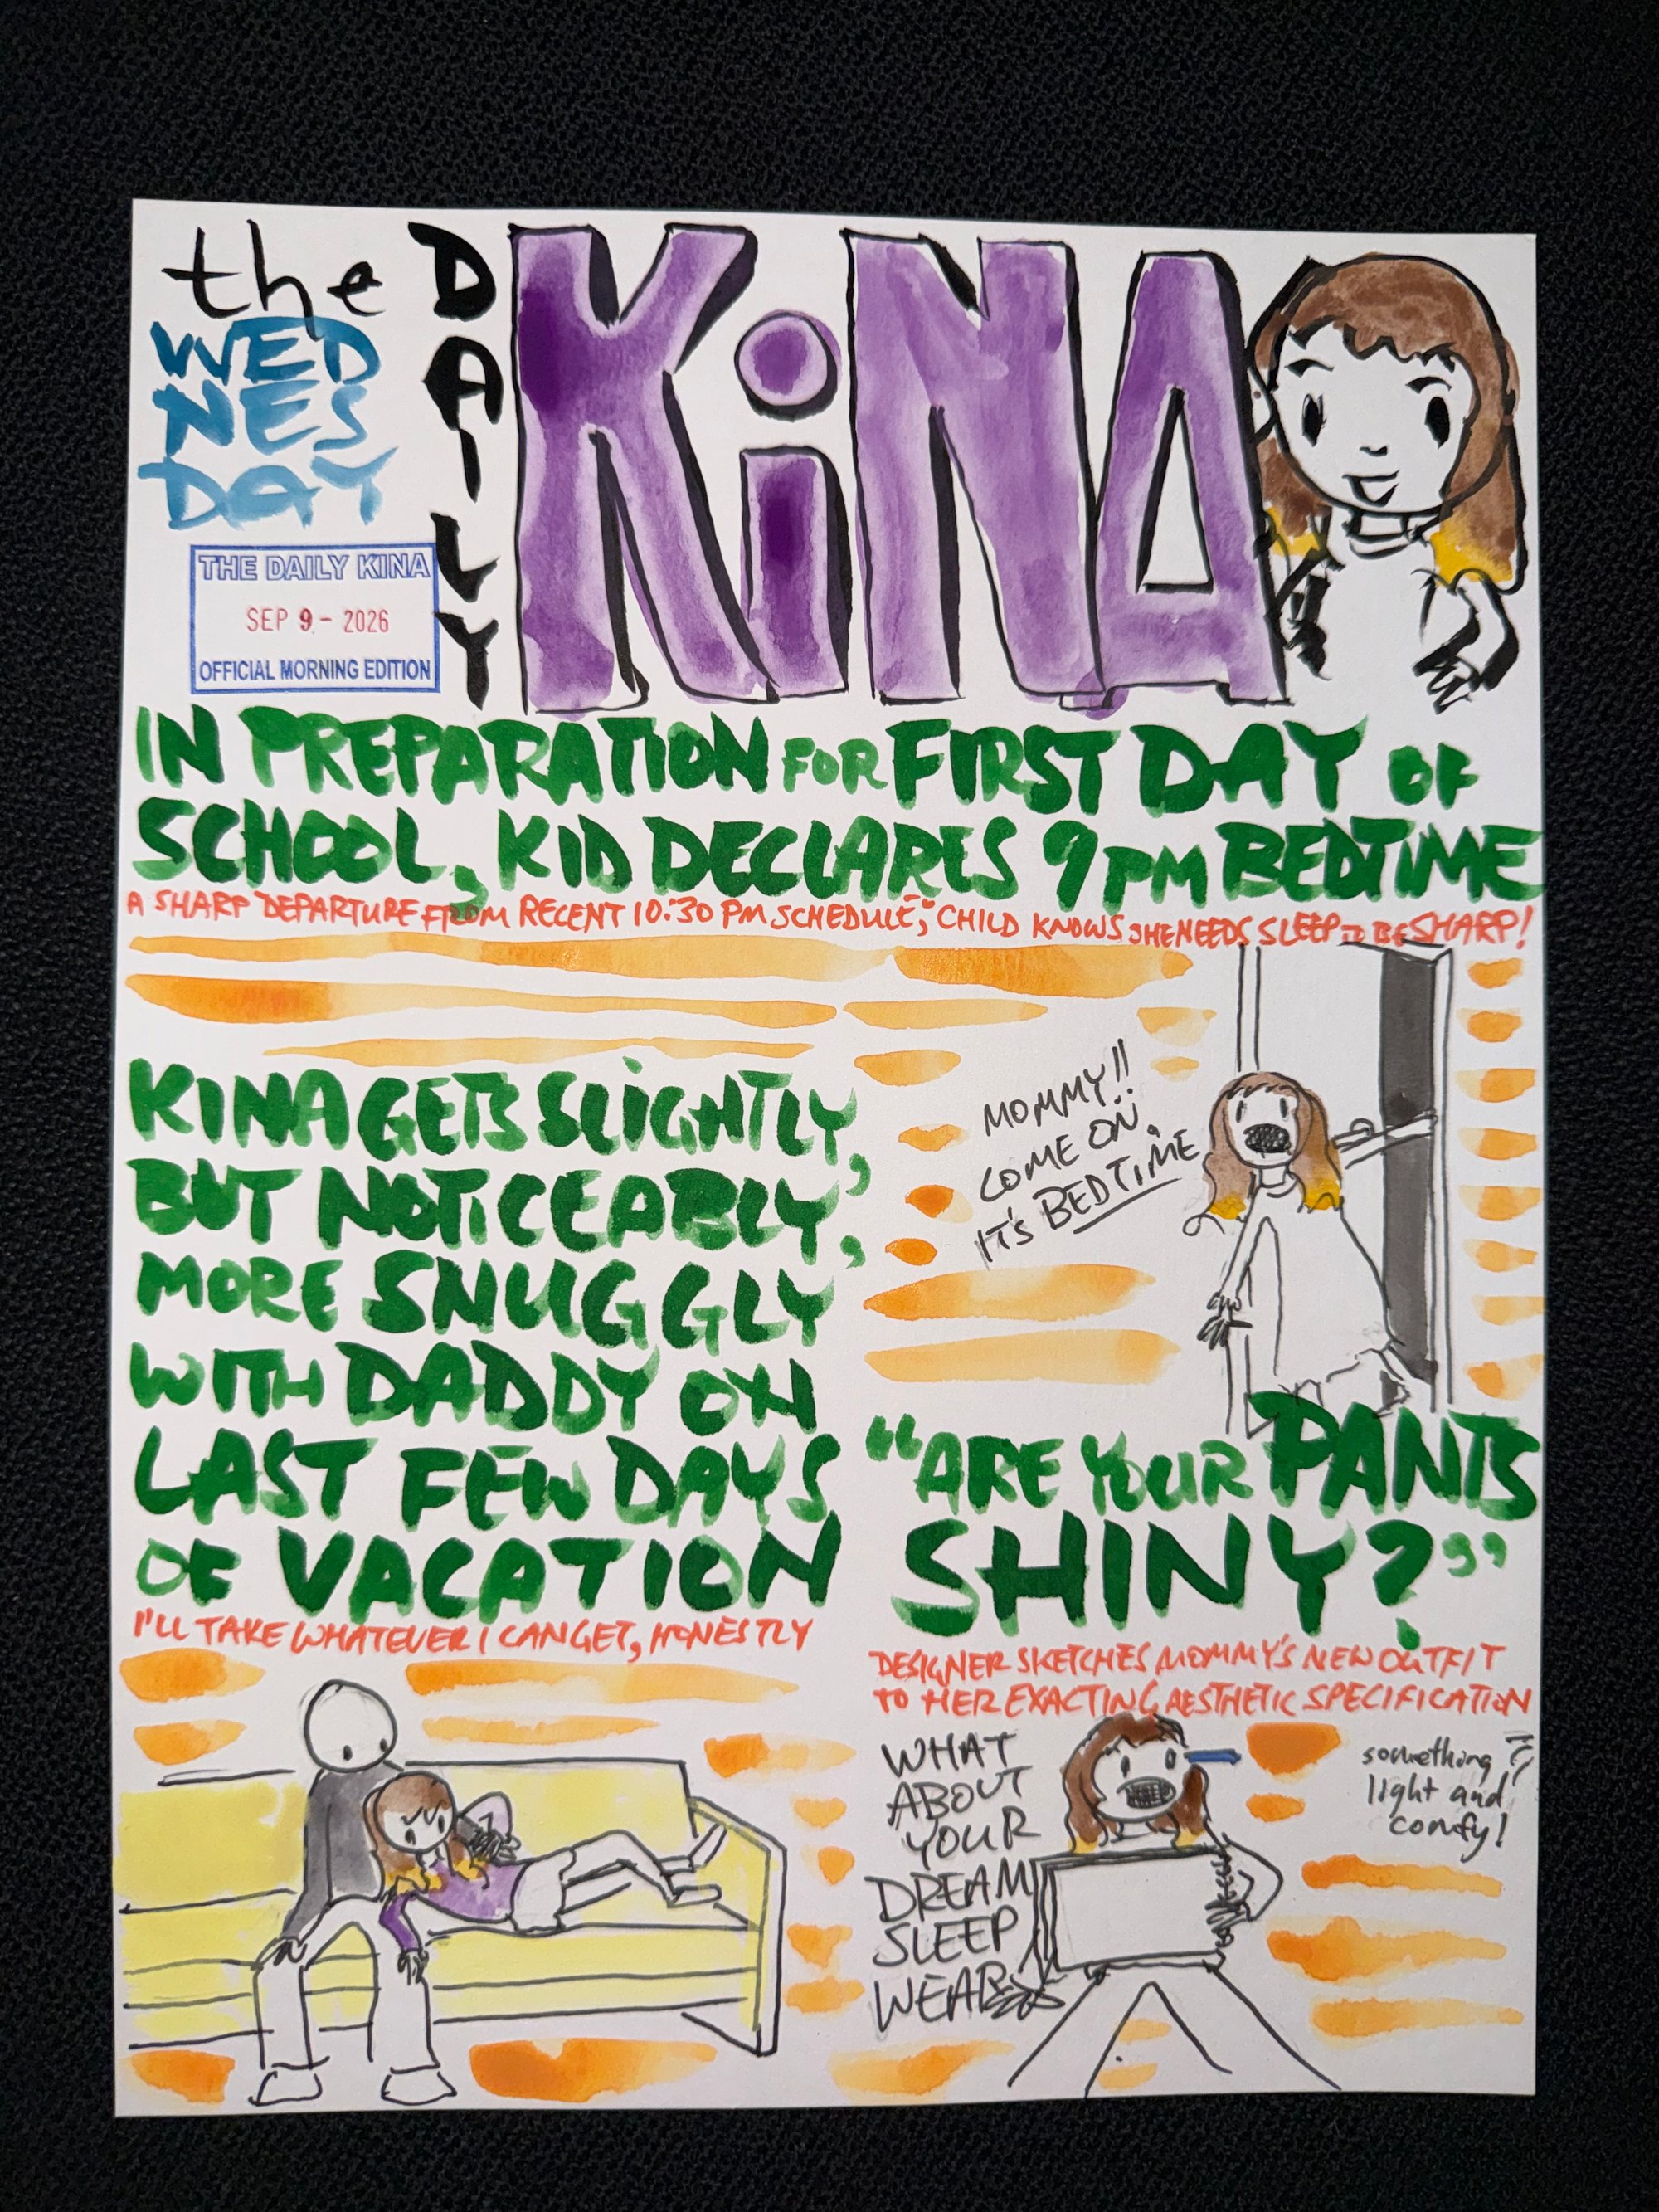 the
WED
NES
DAY
DAILY
KiNA
THE DAILY KINA
SEP 9 - 2026
OFFICIAL MORNING EDITION
IN PREPARATION FOR FIRST DAY OF
SCHOOL, KID DECLARES 9PM BEDTIME
A SHARP DEPARTURE FROM RECENT 10:30 PM SCHEDULE, CHILD KNOWS SHE NEEDS SLEEP TO BE SHARP!
KINA GETS SLIGHTLY,
BUT NOTICEABLY,
MORE SNUGGLY
WITH DADDY ON
LAST FEW DAYS
OF VACATION
I'LL TAKE WHATEVER I CAN GET, HONESTLY
MOMMY!!
COME ON.
IT'S BEDTIME
"ARE YOUR PANTS
SHINY?"
DESIGNER SKETCHES MOMMY'S NEW OUTFIT
TO HER EXACTING AESTHETIC SPECIFICATION
WHAT
ABOUT
YOUR
DREAM
SLEEP
WEAR
something
light and
comfy!